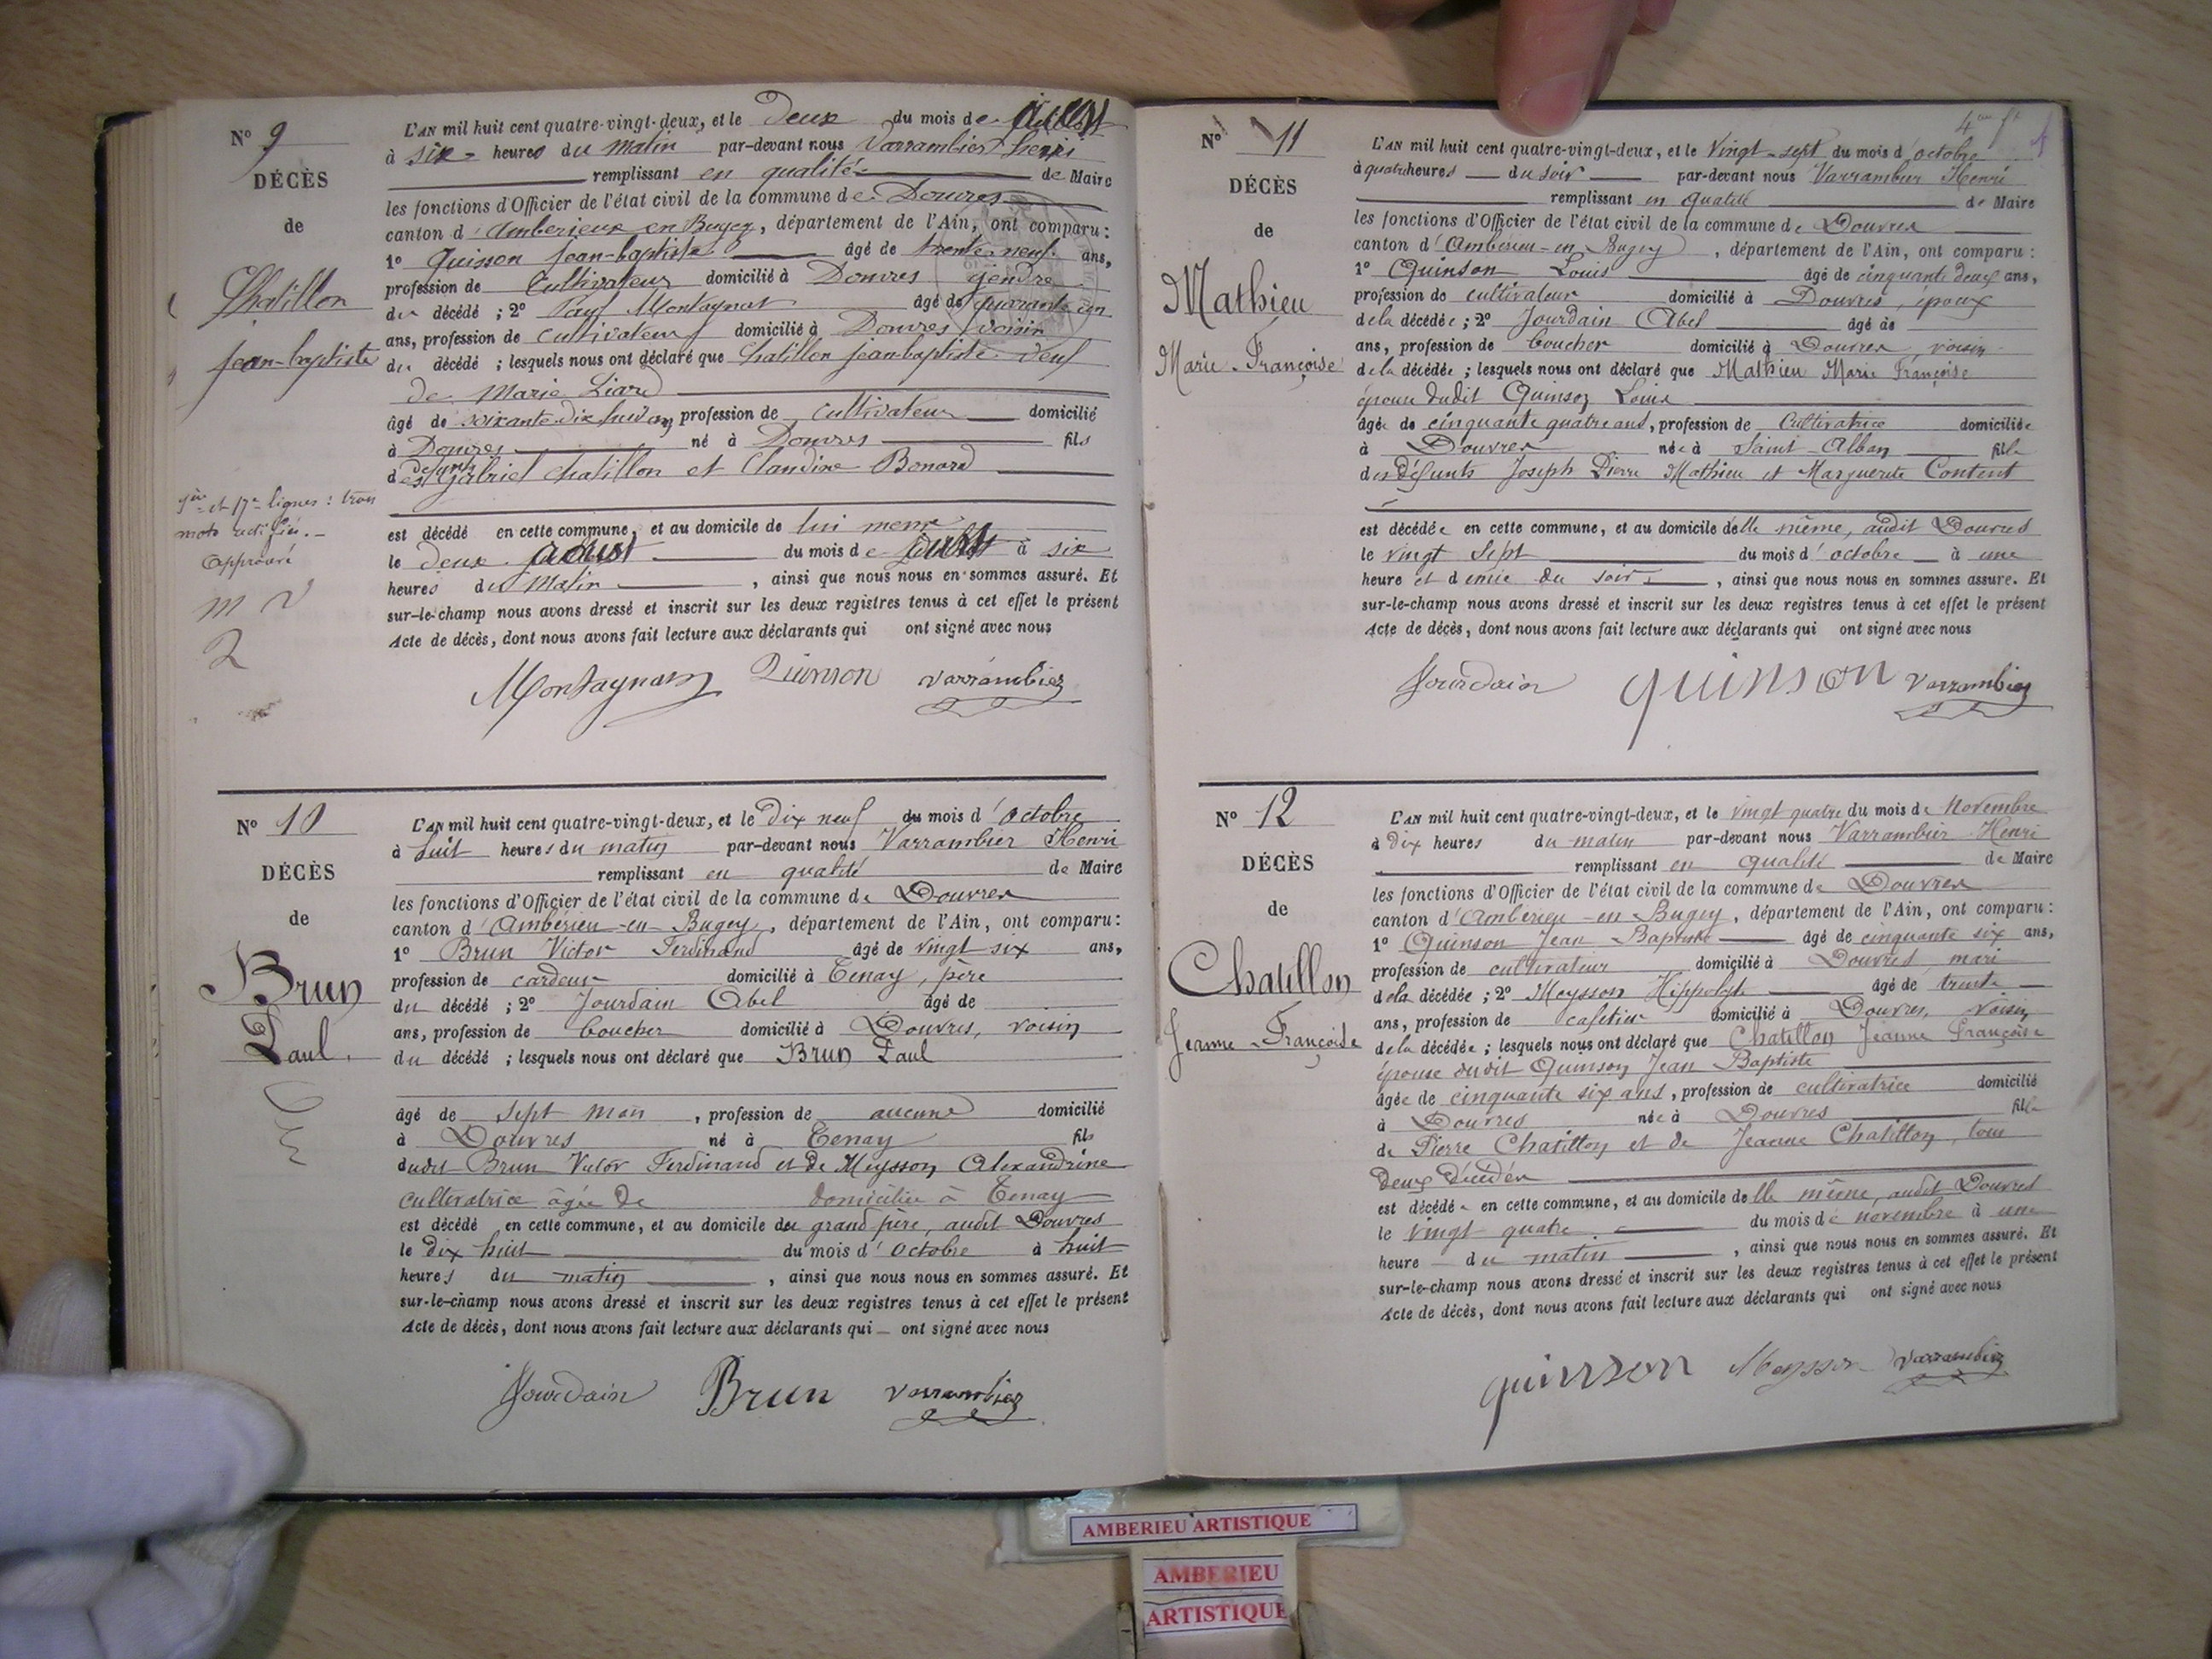 N° 9
DÉCÈS
de
Chatillon
jean-baptiste
1ère et 17e lignes : trois
mots rectifiés. -
Approuvé
L'AN mil huit cent quatre-vingt-deux, et le deux du mois de Août
à six heures du matin par-devant nous Varrambier henri
remplissant en qualité de Maire
les fonctions d'Officier de l'état civil de la commune de Douvres
canton d'Amberieux en Bugey, département de l'Ain, ont comparu :
1° Quinson jean-baptiste âgé de trente-neuf ans,
profession de Cultivateur domicilié à Douvres gendre
du décédé ; 2° Montagnat âgé de quarante un
ans, profession de cultivateur domicilié à Douvres voisin
du décédé ; lesquels nous ont déclaré que Chatillon jean-baptiste veuf
de Marie Liard
âgé de soixante-dix huit ans profession de cultivateur domicilié
à Douvres né à Douvres fils
des défunts Gabriel Chatillon et Claudine Bonard
est décédé en cette commune, et au domicile de lui meme
le deux août du mois de Août à six
heures du Matin, ainsi que nous nous en sommes assuré. Et
sur-le-champ nous avons dressé et inscrit sur les deux registres tenus à cet effet le présent
Acte de décès, dont nous avons fait lecture aux déclarants qui ont signé avec nous
Montagnat Quinson Varrambier
N° 10
DÉCÈS
de
Brun
Paul.
L'AN mil huit cent quatre-vingt-deux, et le dix neuf du mois d'Octobre
à huit heures du matin par-devant nous Varrambier Henri
remplissant en qualité de Maire
les fonctions d'Officier de l'état civil de la commune de Douvres
canton d'Ambérieu-en-Bugey, département de l'Ain, ont comparu :
1° Brun Victor Ferdinand âgé de vingt six ans,
profession de cardeur domicilié à Tenay, père
du décédé ; 2° Jourdain Abel âgé de
ans, profession de boucher domicilié à Douvres, voisin
du décédé ; lesquels nous ont déclaré que Brun Paul
âgé de sept mois, profession de aucune domicilié
à Douvres né à Tenay fils
dudit Brun Victor Ferdinand et de Meysson Alexandrine
cultivatrice âgée de domiciliée à Tenay
est décédé en cette commune, et au domicile du grand père, audit Douvres
le dix huit du mois d'Octobre à huit
heures du matin, ainsi que nous nous en sommes assuré. Et
sur-le-champ nous avons dressé et inscrit sur les deux registres tenus à cet effet le présent
Acte de décès, dont nous avons fait lecture aux déclarants qui ont signé avec nous
Jourdain Brun Varrambier
N° 11
DÉCÈS
de
Mathieu
Marie-Françoise
L'AN mil huit cent quatre-vingt-deux, et le Vingt-sept du mois d'octobre
à quatre heures du soir par-devant nous Varrambier Henri
remplissant en qualité de Maire
les fonctions d'Officier de l'état civil de la commune de Douvres
canton d'Ambérieu-en-Bugey, département de l'Ain, ont comparu :
1° Quinson Louis âgé de cinquante deux ans,
profession de cultivateur domicilié à Douvres, époux
de la décédée ; 2° Jourdain Abel âgé de
ans, profession de boucher domicilié à Douvres voisin
de la décédée ; lesquels nous ont déclaré que Mathieu Marie Françoise
épouse dudit Quinson Louis
âgée de cinquante quatre ans, profession de Cultivatrice domiciliée
à Douvres née à Saint-Alban fille
des défunts Joseph Pierre Mathieu et Marguerite Content
est décédée en cette commune, et au domicile d'elle même, audit Douvres
le vingt Sept du mois d'octobre à une
heure et demie du soir, ainsi que nous nous en sommes assuré. Et
sur-le-champ nous avons dressé et inscrit sur les deux registres tenus à cet effet le présent
Acte de décès, dont nous avons fait lecture aux déclarants qui ont signé avec nous
Jourdain quinson Varrambier
N° 12
DÉCÈS
de
Chatillon
Jeanne-Françoise
L'AN mil huit cent quatre-vingt-deux, et le vingt quatre du mois de Novembre
à dix heures du matin par-devant nous Varrambier Henri
remplissant en qualité de Maire
les fonctions d'Officier de l'état civil de la commune de Douvres
canton d'Ambérieu-en-Bugey, département de l'Ain, ont comparu :
1° Quinson Jean Baptiste âgé de cinquante six ans,
profession de cultivateur domicilié à Douvres mari
de la décédée ; 2° Meysson Hippolyte âgé de trente
ans, profession de cafetier domicilié à Douvres, voisin
de la décédée ; lesquels nous ont déclaré que Chatillon Jeanne Françoise
épouse dudit Quinson Jean Baptiste
âgée de cinquante six ans, profession de cultivatrice domicilié
à Douvres née à Douvres fille
de Pierre Chatillon et de Jeanne Chatillon, tous
deux décédés
est décédée en cette commune, et au domicile d'elle même, audit Douvres
le vingt quatre du mois de novembre à une
heure du matin, ainsi que nous nous en sommes assuré. Et
sur-le-champ nous avons dressé et inscrit sur les deux registres tenus à cet effet le présent
Acte de décès, dont nous avons fait lecture aux déclarants qui ont signé avec nous
quinson Meysson Varrambier
AMBERIEU ARTISTIQUE
AMBERIEU
ARTISTIQUE